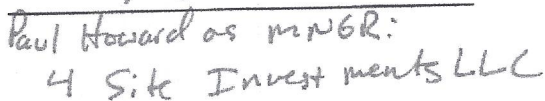 Paul Howard as MNGR:
4 Site Investments LLC